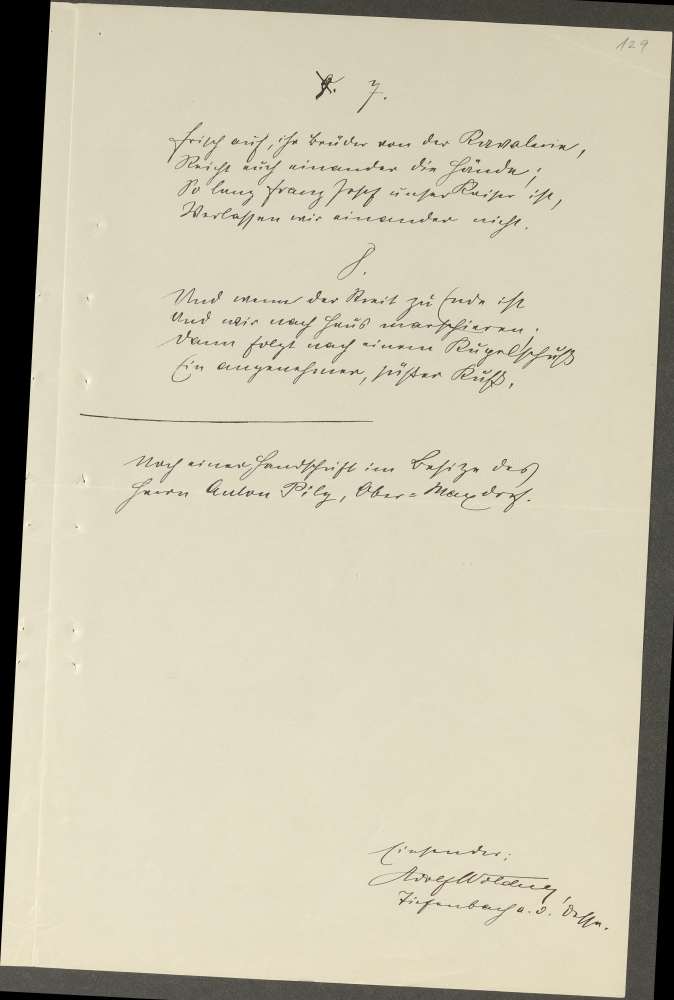 129
7.
Frisch auf, ihr Brüder von der Kavalerie,
Reicht euch einander die Hände;
So lang Franz Josef unser Kaiser ist,
Verlassen wir einander nicht.
8.
Und wenn der Streit zu Ende ist
Und wir nach Haus marschieren.
Dann folgt nach einem Kugelschuß
Ein angenehmer, süßer Kuß.
Nach einer Handschrift im Besitze des
Herrn Anton Pilz, Ober-Maxdorf.
Einsender:
Adolf
Tiefenbach a. d. Desse.